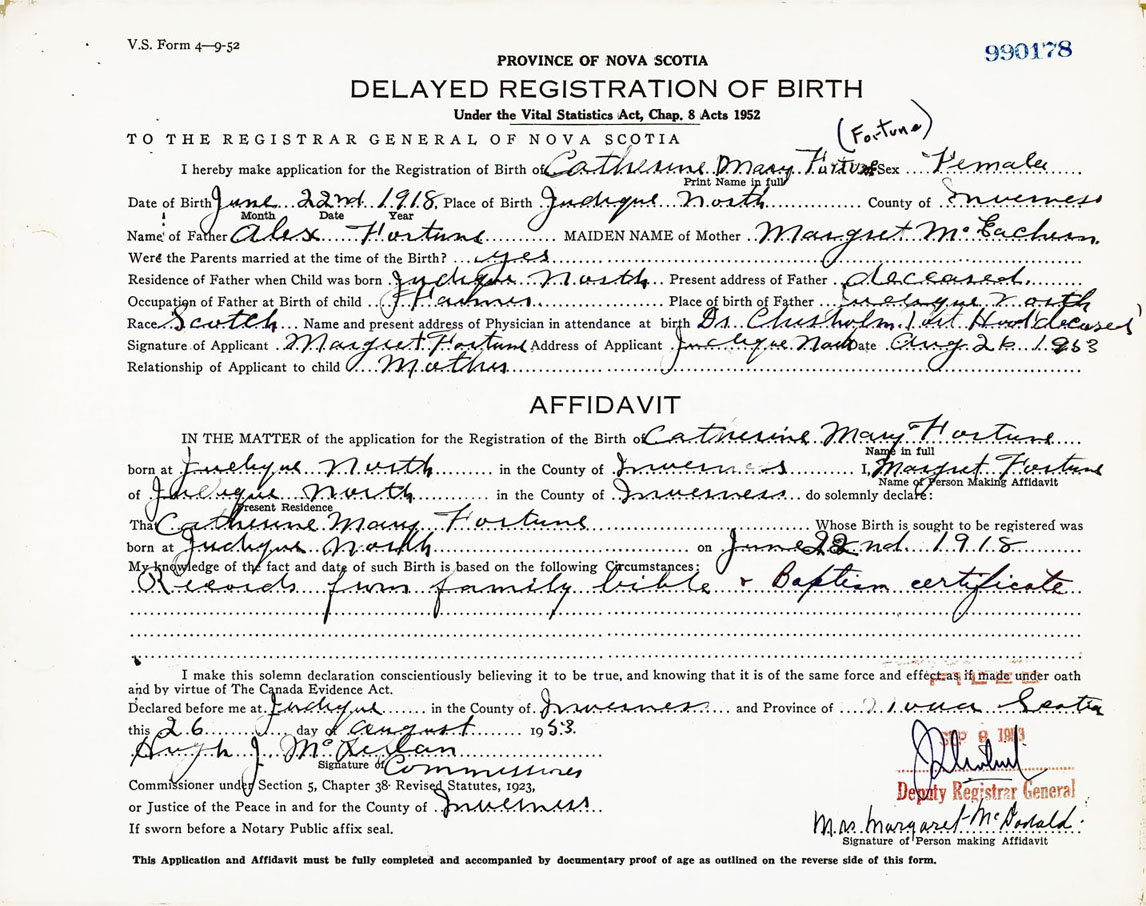 V.S. Form 4—9-52
990178
PROVINCE OF NOVA SCOTIA
DELAYED REGISTRATION OF BIRTH
Under the Vital Statistics Act, Chap. 8 Acts 1952
TO THE REGISTRAR GENERAL OF NOVA SCOTIA
(Fortune)
I hereby make application for the Registration of Birth of Catherine Mary Fortune Sex Female
Print Name in full
Date of Birth June 22nd 1918 Place of Birth Judique North County of Inverness
Month Date Year
Name of Father Alex Fortune MAIDEN NAME of Mother Margret McEachern
Were the Parents married at the time of the Birth? yes
Residence of Father when Child was born Judique North Present address of Father deceased
Occupation of Father at Birth of child Farmer Place of birth of Father Judique North
Race Scotch Name and present address of Physician in attendance at birth Dr Chisholm Port Hood deceased
Signature of Applicant Margret Fortune Address of Applicant Judique North Date Aug. 26 1953
Relationship of Applicant to child Mother
AFFIDAVIT
IN THE MATTER of the application for the Registration of the Birth of Catherine Mary Fortune
Name in full
born at Judique North in the County of Inverness I, Margret Fortune
Name of Person Making Affidavit
of Judique North in the County of Inverness do solemnly declare:
Present Residence
That Catherine Mary Fortune Whose Birth is sought to be registered was
born at Judique North on June 22nd 1918
My knowledge of the fact and date of such Birth is based on the following Circumstances:
Records from family bible + Baptism certificate
I make this solemn declaration conscientiously believing it to be true, and knowing that it is of the same force and effect as if made under oath
and by virtue of The Canada Evidence Act.
Declared before me at Judique in the County of Inverness and Province of Nova Scotia
this 26 day of August 1953.
Hugh J. McLellan
Signature of Commissioner
Commissioner under Section 5, Chapter 38 Revised Statutes, 1923,
or Justice of the Peace in and for the County of Inverness
SEP 8 1953
Deputy Registrar General
If sworn before a Notary Public affix seal.
Mrs. Margaret McDonald.
Signature of Person making Affidavit
This Application and Affidavit must be fully completed and accompanied by documentary proof of age as outlined on the reverse side of this form.